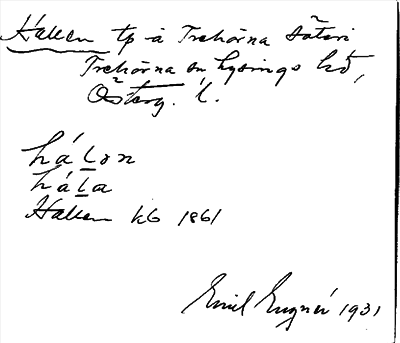 Hallen tp å Trehörna säteri
Trehörna sn Lysings hd,
Österg. l.
hálon
hála
Hallen kb 1861
Emil Eugner 1931